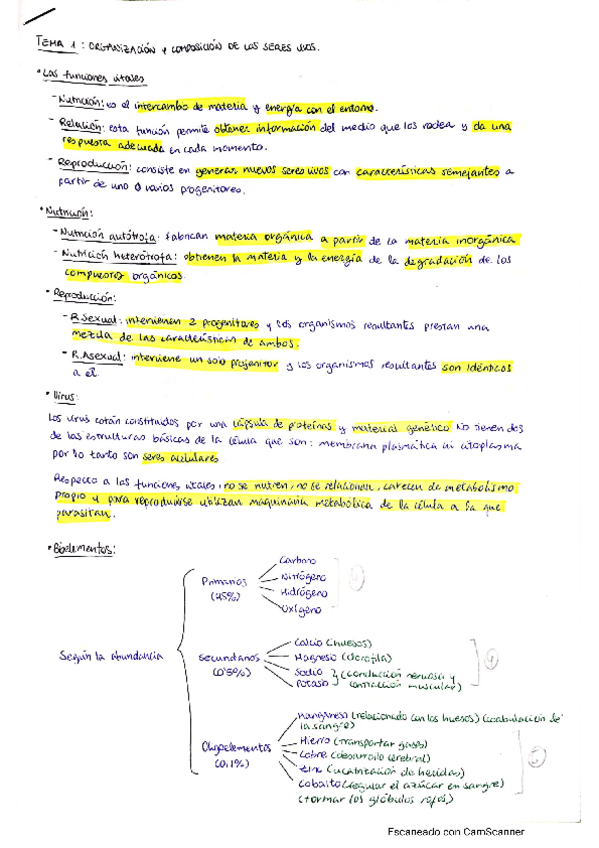 TEMA 1: ORGANIZACIÓN Y COMPOSICIÓN DE LOS SERES VIVOS.
• Las funciones vitales
- Nutrición: es el intercambio de materia y energía con el entorno.
- Relación: esta función permite obtener información del medio que los rodea y da una
respuesta adecuada en cada momento.
- Reproducción: consiste en generar nuevos seres vivos con características semejantes a
partir de uno o varios progenitores.
• Nutrición:
- Nutrición autótrofa: fabrican materia orgánica a partir de la materia inorgánica
- Nutrición heterótrofa: obtienen la materia y la energía de la degradación de los
compuestos orgánicos.
• Reproducción:
- R.Sexual: intervienen 2 progenitores y los organismos resultantes presentan una
mezcla de las características de ambos.
- R.Asexual: interviene un solo projenitor y los organismos resultantes son idénticos
a el.
• Virus:
Los virus están constituidos por una cápsula de proteínas y material genético. No tienen dos
de las estructuras básicas de la célula que son: membrana plasmática ni citoplasma
por lo tanto son seres acelulares.
Respecto a las funciones vitales, no se nutren, no se relacionan, carecen de metabolismo
propio y para reproducirse utilizan maquinaria metabólica de la célula a la que
parasitan.
• Bioelementos:
Según la abundancia
Primarios
Carbono
Nitrógeno
Hidrógeno
Oxígeno
Secundarios
Calcio (huesos)
Magnesio (clorofila)
Sodio
Potasio
(conducción nerviosa y
contracción muscular)
Oligoelementos
(0,1%)
Manganeso (relacionado con los huesos) (coabulación de
la sangre)
Hierro (transportar gases)
Cobre (desarrollo cerebral)
Zinc (cicatrización de heridas)
Cobalto (regular el azúcar en sangre)
(formar los glóbulos rojos)
Escaneado con CamScanner